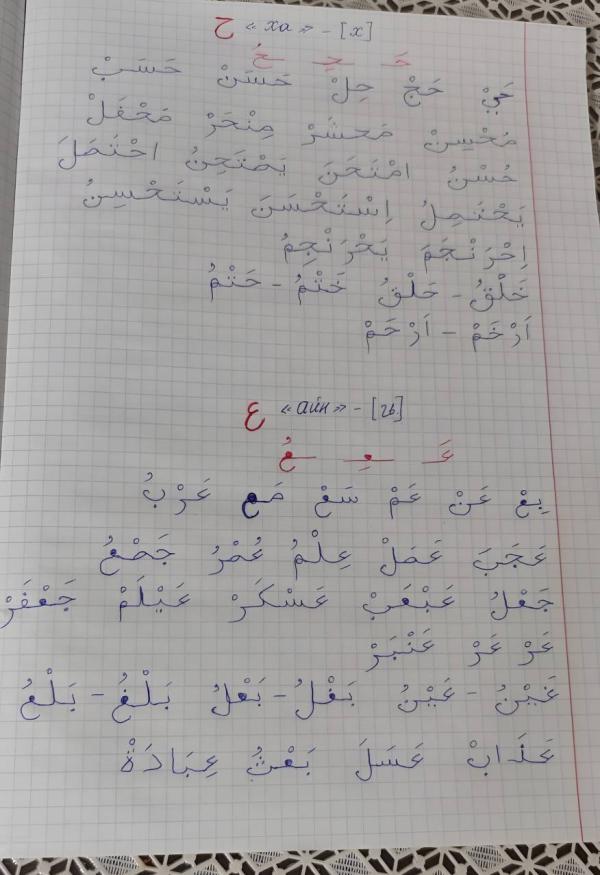 ح «ха» – [х]
حَـ ـحِـ ـحُ
حَيْ حَجْ حِلْ حَسَنْ حَسَبْ
مُحْسِنْ مَحْشَرْ مِنْحَرْ مَحْفَلْ
حُسْنُ امْتَحَنَ يَمْتَحِنُ احْتَمَلَ
يَحْتَمِلُ اِسْتَحْسَنَ يَسْتَحْسِنُ
اِحْرَنْجَمَ يَحْرَنْجِمُ
خَلْقُ – حَلْقُ خَتْمُ – حَتْمُ
اَرْخَمْ – اَرْحَمْ
ع «айн» – [гь]
عَـ ـعِـ ـعُ
بِعْ عَنْ عَمْ سَعْ مَع عَرْبُ
عَجَبَ عَمَلْ عِلْمُ عُمْرُ جَمْعُ
جَعْلُ عَبْعَبْ عَسْكَرْ عَيْلَمْ جَعْفَرْ
غَرْ عَرْ عَنْبَرْ
غَيْنُ – عَيْنُ بَغْلُ – بَعْلُ بَلْغُ – بَلْعُ
عَذَابْ عَسَلَ بَعْثُ عِبَادَةْ